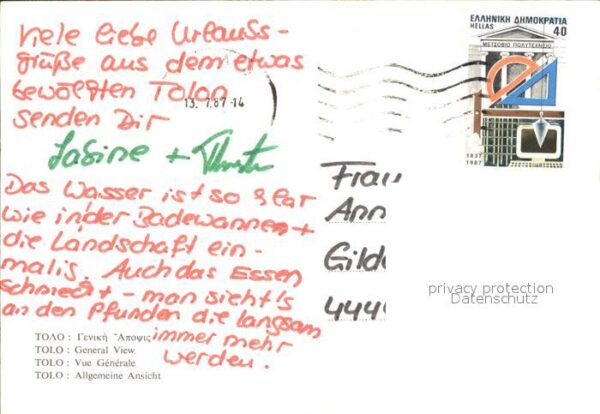 Viele liebe Urlaubs-
grüße aus dem etwas
bewölkten Tolon
senden Dir
Sabine +
Das Wasser ist so klar
wie in der Badewanne +
die Landschaft ein-
malig. Auch das Essen
schmeckt - man sieht's
an den Pfunden die langsam
immer mehr
werden.
ΤΟΛΟ : Γενική Ἄποψις
TOLO : General View
TOLO : Vue Générale
TOLO : Allgemeine Ansicht
13.7.87-14
ΕΛΛΗΝΙΚΗ ΔΗΜΟΚΡΑΤΙΑ
HELLAS 40
ΜΕΤΣΟΒΙΟ ΠΟΛΥΤΕΧΝΕΙΟ
1837
1987
Frau
Ann
Gilde
4440
privacy protection
Datenschutz